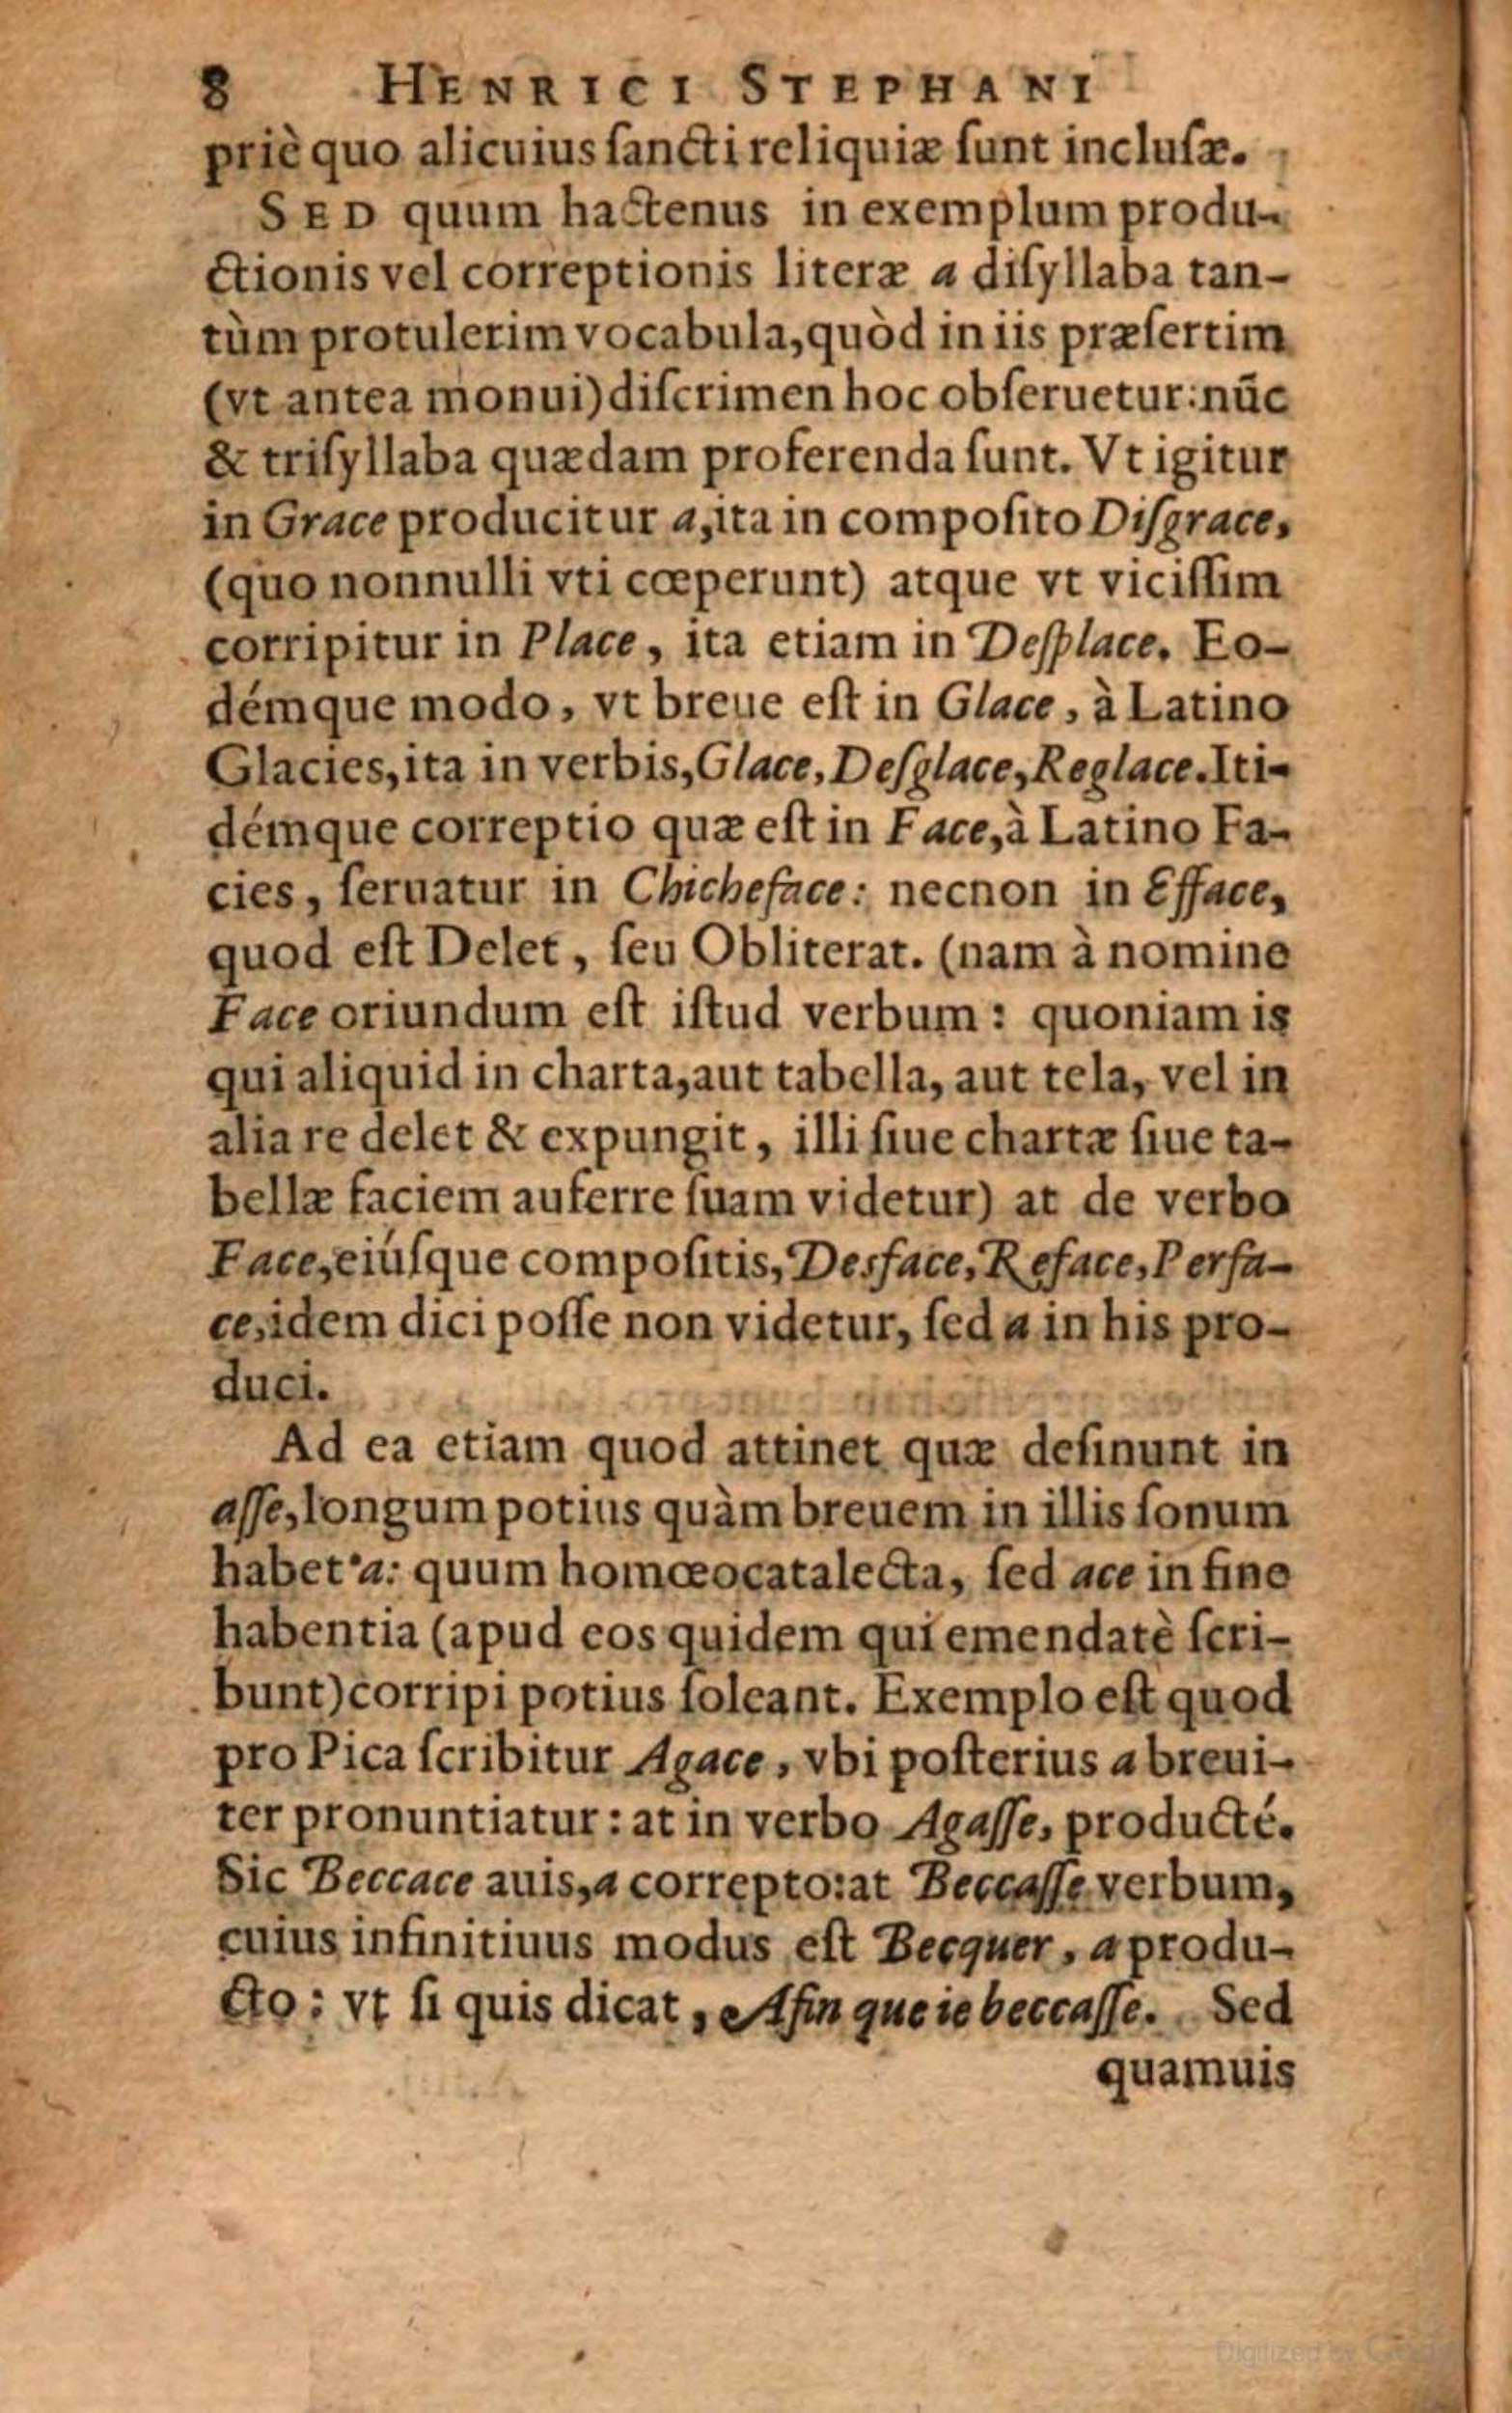 8 HENRICI STEPHANI
priè quo alicuius ſancti reliquiæ ſunt incluſæ.
SED quum hactenus in exemplum produ-
ctionis vel correptionis literæ a diſyllaba tan-
tùm protulerim vocabula, quòd in iis præſertim
(vt antea monui) diſcrimen hoc obſeruetur: nūc
& triſyllaba quædam proferenda ſunt. Vt igitur
in Grace producitur a, ita in compoſito Diſgrace,
(quo nonnulli vti cœperunt) atque vt viciſſim
corripitur in Place, ita etiam in Deſplace. Eo-
démque modo, vt breue eſt in Glace, à Latino
Glacies, ita in verbis, Glace, Deſglace, Reglace. Iti-
démque correptio quæ eſt in Face, à Latino Fa-
cies, ſeruatur in Chicheface: necnon in Efface,
quod eſt Delet, ſeu Obliterat. (nam à nomine
Face oriundum eſt iſtud verbum: quoniam is
qui aliquid in charta, aut tabella, aut tela, vel in
alia re delet & expungit, illi ſiue chartæ ſiue ta-
bellæ faciem auferre ſuam videtur) at de verbo
Face, eiúſque compoſitis, Desface, Reface, Perfa-
ce, idem dici poſſe non videtur, ſed a in his pro-
duci.
Ad ea etiam quod attinet quæ deſinunt in
aſſe, longum potius quàm breuem in illis ſonum
habet a: quum homœocatalecta, ſed ace in fine
habentia (apud eos quidem qui emendatè ſcri-
bunt) corripi potius ſoleant. Exemplo eſt quod
pro Pica ſcribitur Agace, vbi poſterius a breui-
ter pronuntiatur: at in verbo Agaſſe, producté.
Sic Beccace auis, a correpto: at Beccaſſe verbum,
cuius infinitiuus modus eſt Becquer, a produ-
cto: vt ſi quis dicat, Afin que ie beccaſſe. Sed
quamuis
Digitized by Google